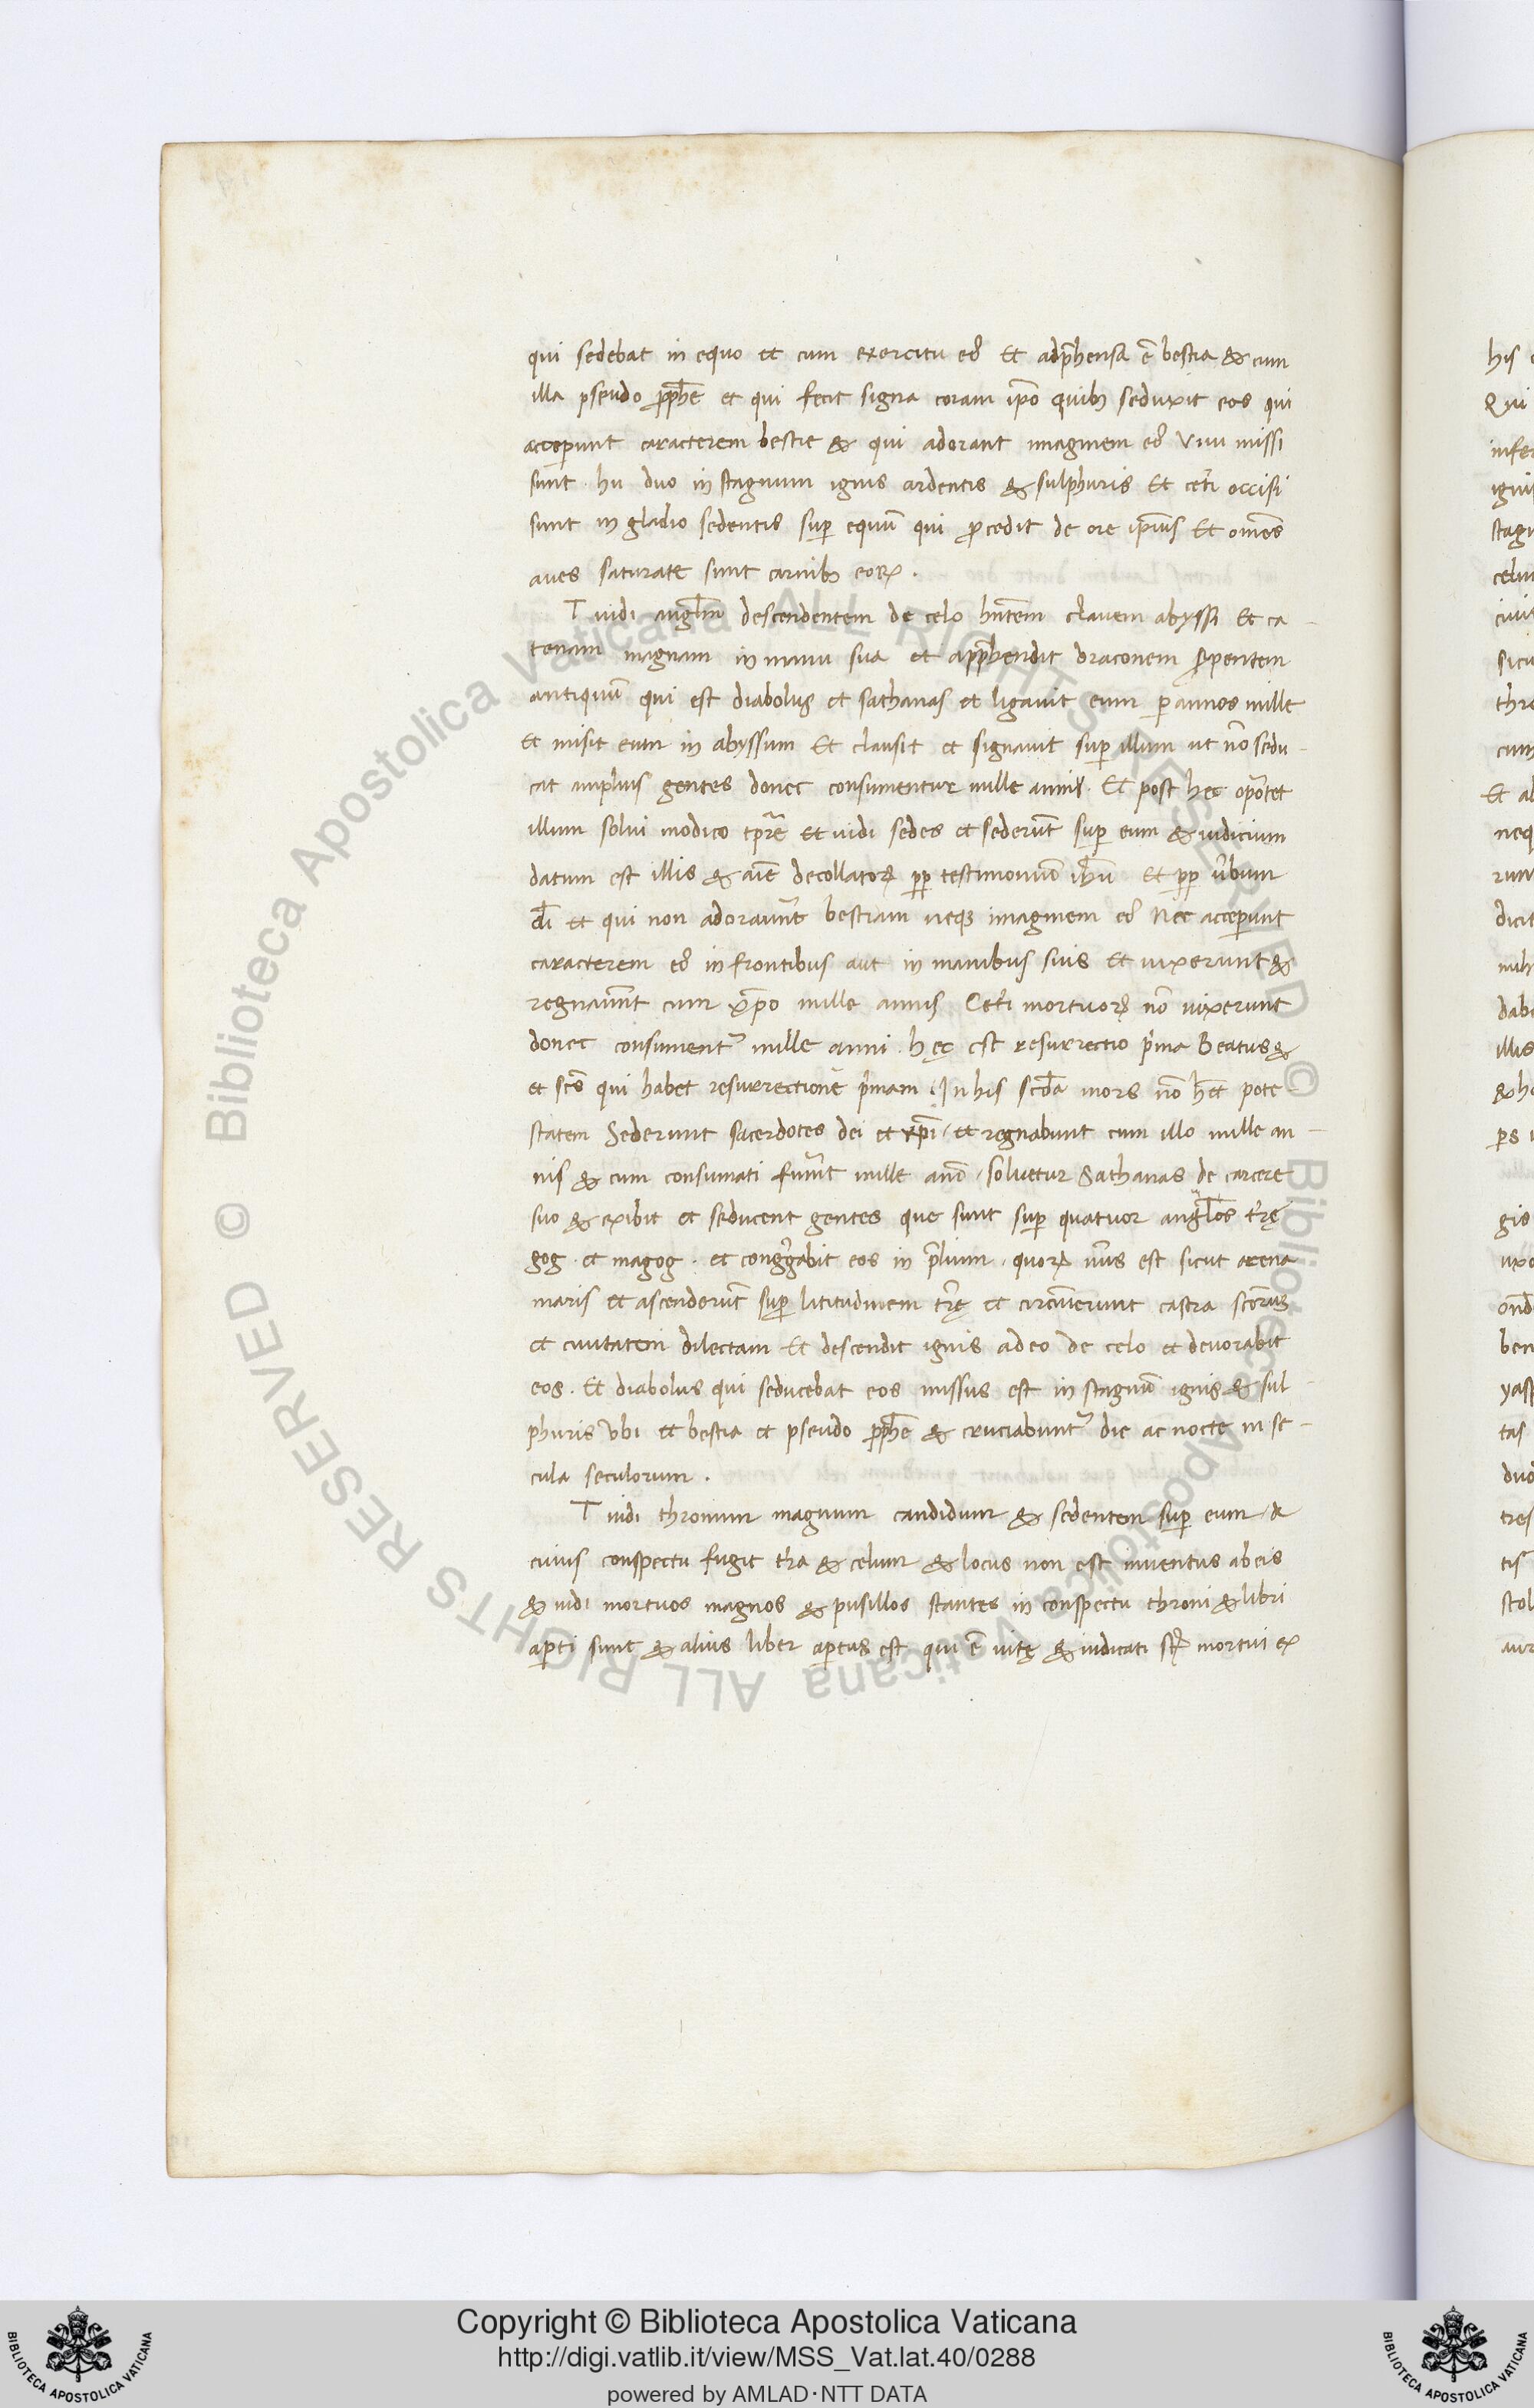 qui sedebat in equo et cum exercitu eiꝰ Et adp̄hensa ē bestia & cum
illa pseudo ꝓph̄e et qui fecit signa coram ip̄o quibꝫ seduxit eos qui
acceperunt caracterem bestie & qui adorant imaginem eiꝰ Viui missi
sunt hii duo in stagnum ignis ardentis & sulphuris Et cet̄i occisi
sunt in gladio sedentis suꝑ equū qui ꝓcedit de ore ip̄ius Et om̄es
aues saturate sunt carnibꝫ eoꝝ .
T uidi angl̄m descendentem de celo hn̄tem clauem abyssi Et ca-
tenam magnam in manu sua et app̄hendit draconem s̄pentem
antiquū qui est diabolus et sathanas et ligauit eum ꝑ annos mille
Et misit eum in abyssum Et clausit et signauit suꝑ illum ut nō sedu-
cat amplius gentes donec consumentur mille anni . Et post hec oportet
illum solui modico tp̄re Et uidi sedes et sederūt suꝑ eum & iudicium
datum est illis & aīe decollatoꝝ ꝓꝑ testimoniū ih̄u Et ꝓꝑ ūbum
dī et qui non adorauūt bestiam neqꝫ imaginem eiꝰ Nec acceperunt
caracterem eiꝰ in frontibus aut in manibus suis Et uixerunt &
regnauūt cum xp̄o mille annis Cet̄i mortuoꝝ nō uixerunt
donec consument᷑ mille anni . hęc est resurrectio p̄ma Beatus &
et sc̄s qui habet resurrectionē p̄mam . In his scd̄a mors nō h̄et pote-
statem Sederunt sacerdotes dei et xp̄i et regnabunt cum illo mille an-
nis & cum consumati fuūt mille anō soluetur Sathanas de carcere
suo & exibit et seducent gentes que sunt suꝑ quatuor angl̄os t̄rę
gog . et magog . et conḡgabit eos in p̄lium . quoꝝ nūs est sicut arena
maris et ascenderūt suꝑ latitudinem t̄rę et circūierunt castra sc̄oruꝫ
et ciuitatem dilectam Et descendit ignis a deo de celo et deuorabit
eos . Et diabolus qui seducebat eos missus est in stagnū ignis & sul-
phuris Vbi et bestia et pseudo ꝓph̄e & cruciabunt᷑ die ac nocte in se-
cula seculorum .
T uidi thronum magnum candidum & sedentem suꝑ eum a
cuius conspectu fugit t̄ra & celum & locus non est inuentus ab eis
& uidi mortuos magnos & pusillos stantes in conspectu throni & libri
aꝑti sunt & alius liber aꝑtus est qui ē uitę & iudicati st̄ mortui ex
his
Qui
celu
thro
cum
Et
neq
dicit
illis
gio
ben
tas
duo
tres
Copyright © Biblioteca Apostolica Vaticana
http://digi.vatlib.it/view/MSS_Vat.lat.40/0288
powered by AMLAD·NTT DATA
BIBLIOTECA APOSTOLICA VATICANA
BIBLIOTECA APOSTOLICA VATICANA
© Biblioteca Apostolica Vaticana ALL RIGHTS RESERVED
© Biblioteca Apostolica Vaticana ALL RIGHTS RESERVED